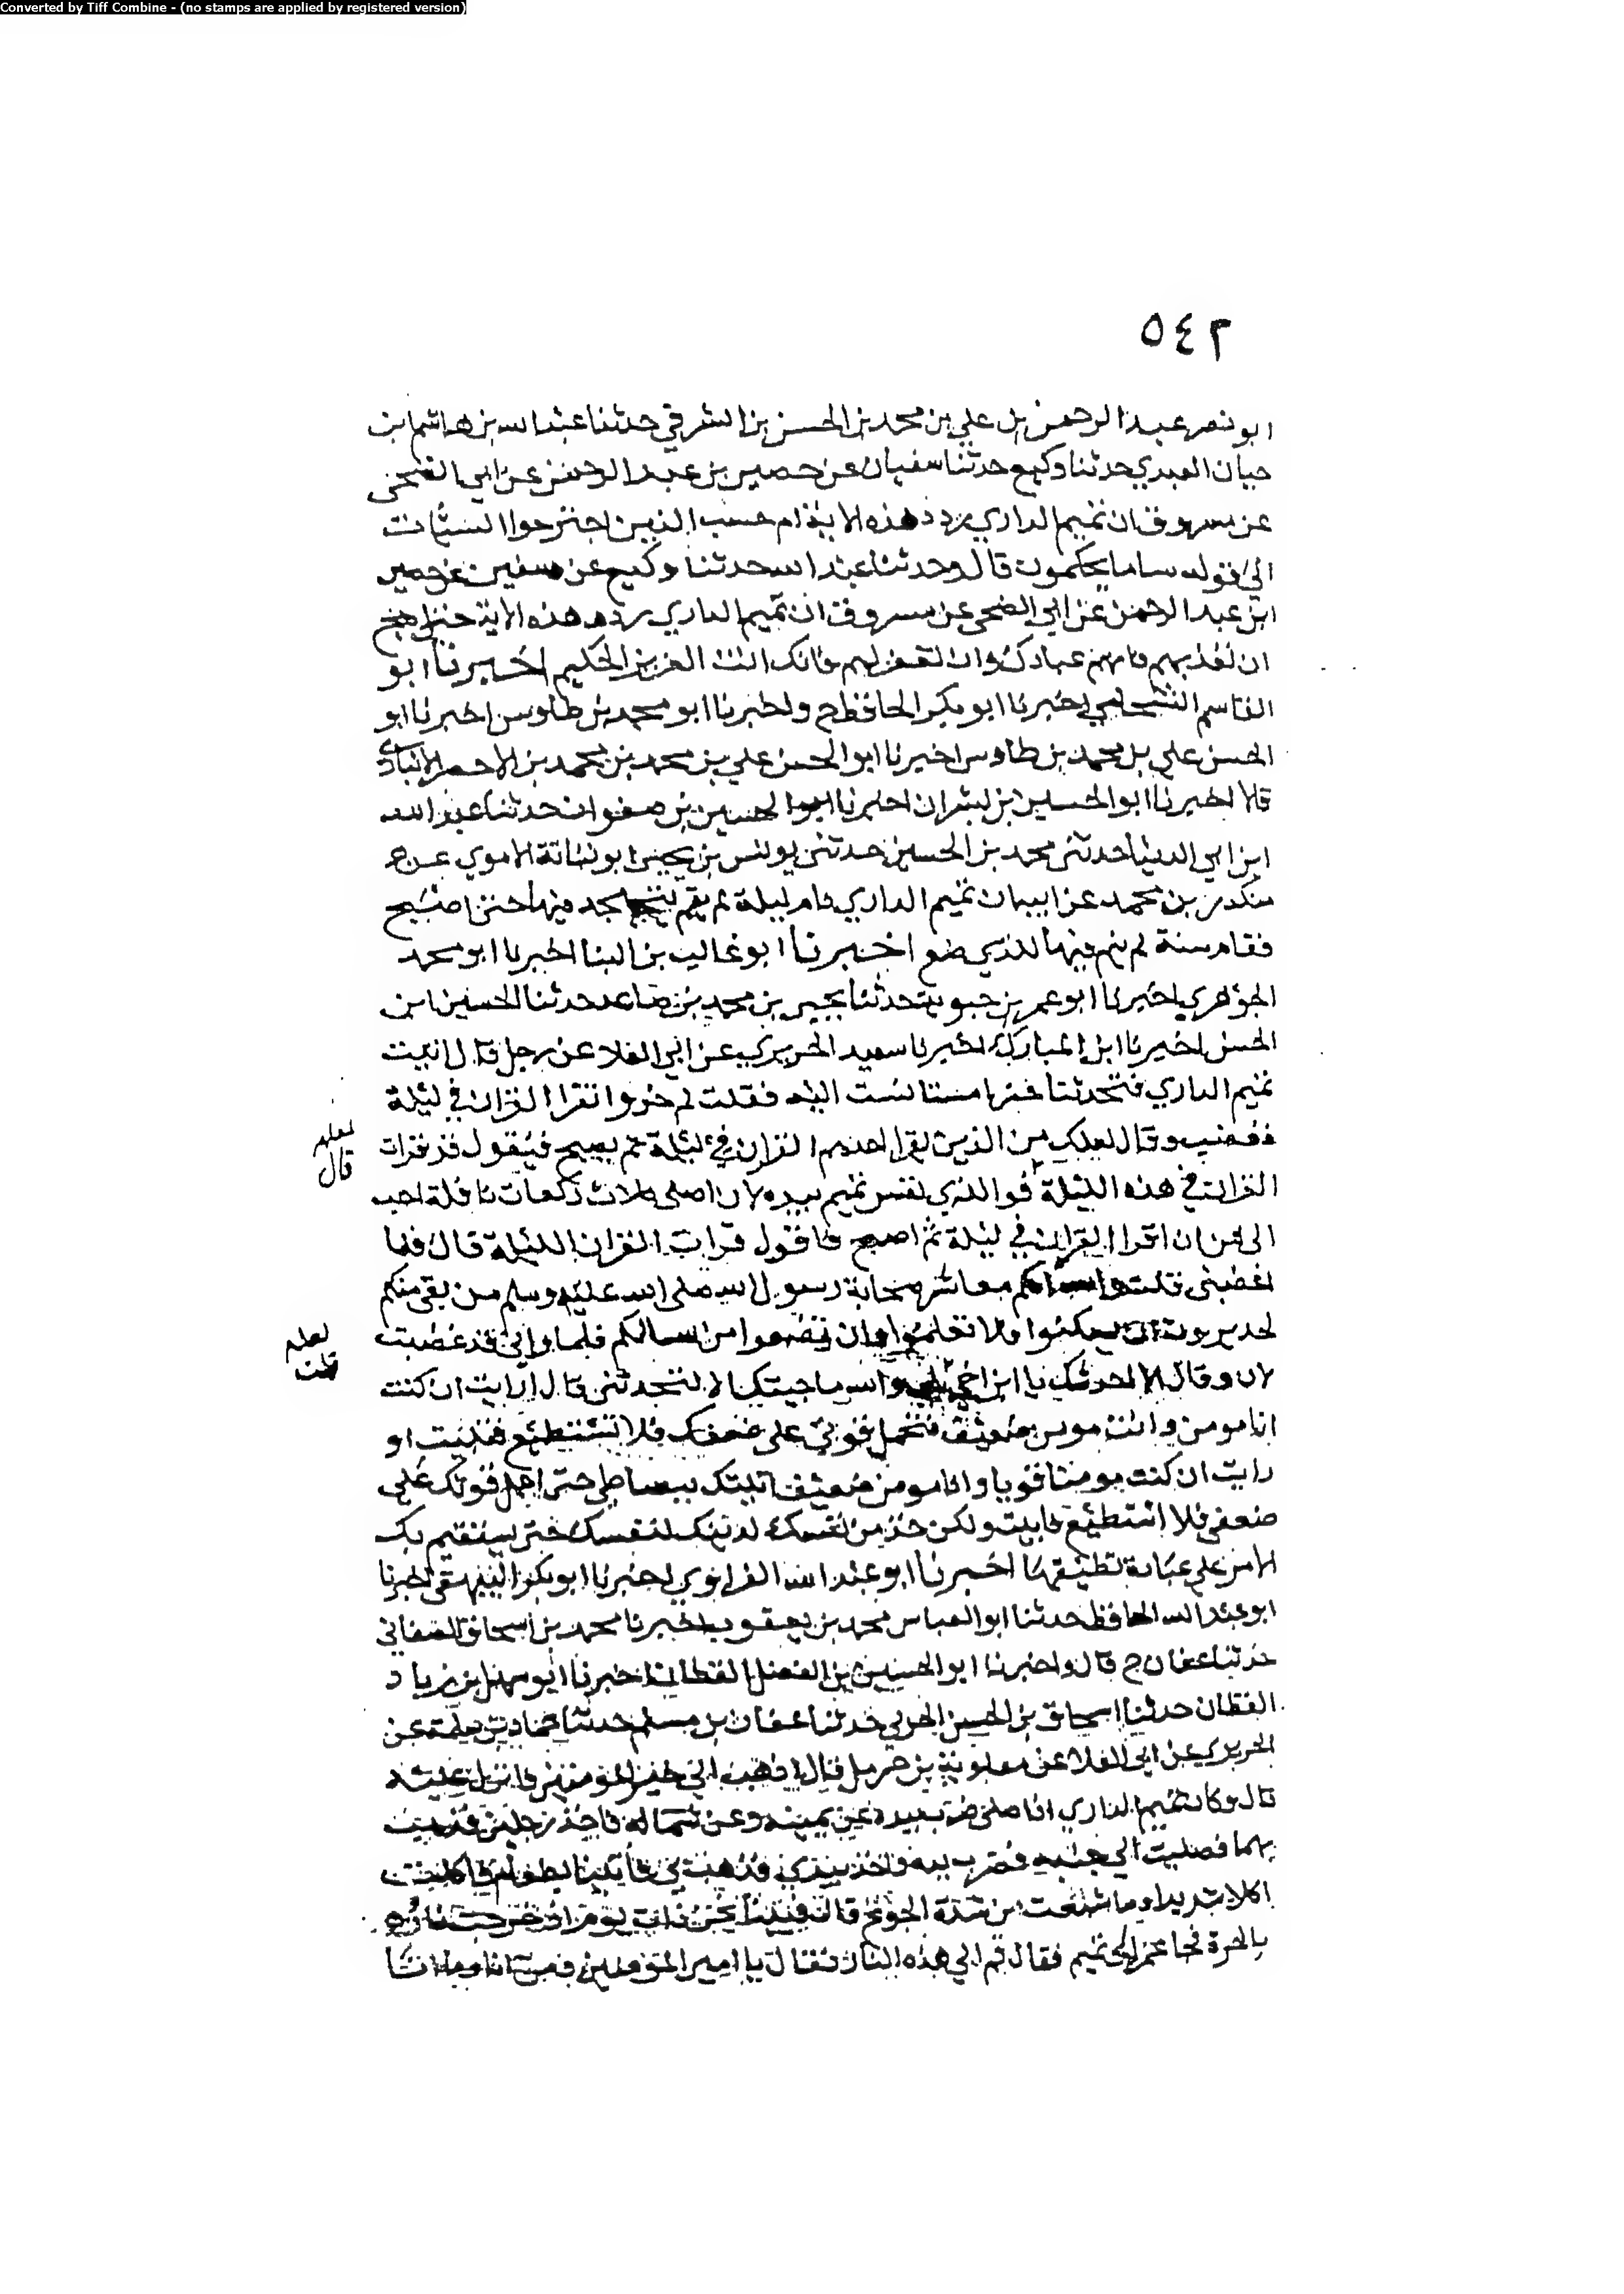 Converted by Tiff Combine - (no stamps are applied by registered version)
٥٤٢
ابو نصر عبد الرحمن بن علي بن محمد بن الحسن بن الشرقي حدثنا عبد الله بن هاشم ابن
حيان العبدي حدثنا وكيع حدثنا سفيان عن حصين بن عبد الرحمن عن ابي الضحى
عن مسروق ان تميم الداري ردد هذه الاية ام حسب الذين اجترحوا السيئات
الى قوله سا ما يحكمون قال وحدثنا عبد الله حدثنا وكيع عن سفين عن حصين
ابن عبد الرحمن عن ابي الضحى عن مسروق ان تميم الداري ردد هذه الاية حتى اصبح
ان تعذبهم فانهم عبادك وان تغفر لهم فانك انت العزيز الحكيم اخبرنا ابو
القاسم الشحامي اخبرنا ابو بكر الحافظ ح واخبرنا ابو محمد بن طاوس اخبرنا ابو
الحسن علي بن محمد بن طاوس اخبرنا ابو الحسن علي بن محمد بن محمد بن الاحصر الانباري
قالا اخبرنا ابو الحسين بن بشران اخبرنا ابو الحسين بن صفوان حدثنا عبد الله
ابن ابي الدنيا حدثني محمد بن الحسين حدثني يونس بن يحيى ابو نباتة الاموي عن
منكدر بن محمد عن ابيه ان تميم الداري نام ليلة لم يقم يتهجد فيها حتى اصبح
فقام سنة لم ينم فيها للذي صنع اخبرنا ابو غالب بن البنا اخبرنا ابو محمد
الجوهري اخبرنا ابو عمر بن حيويه حدثنا يحيى بن محمد بن صاعد حدثنا الحسين ابن
الحسن اخبرنا ابن المبارك اخبرنا سعيد الجريري عن ابي العلا عن رجل قال اتيت
تميم الداري فتحدثنا حتى استانست اليه فقلت كم جزوا تقرا القران في ليلة
فغضب وقال لعلك من الذين يقرا احدهم القران في ليلة ثم يصبح فيقول قد قرات
لعله
قال
القران في هذه الليلة فوالذي نفس تميم بيده لان اصلي ثلاث ركعات نافلة احب
الى من ان اقرا القران في ليلة ثم اصبح فاقول قرات القران الليلة قال فلما
اغضبني قلت والله انكم معاشر صحابة رسول الله صلى الله عليه وسلم من بقي منكم
لجديرون ان تسكتوا فلا تعلموا وان تعنفوا من سالكم فلما راني قد غضبت
لعله
قلت
لان وقال الا احدثك يا ابن اخي بلى والله ما جيتك الا لتحدثني قال ارايت ان كنت
انا مومن قوي وانت مومن ضعيف فتحمل قوتي على ضعفك فلا تستطيع فتنبت او
رايت ان كنت مومنا قويا وانا مومن ضعيف اتيتك ببساطي حتى احمل قوتك على
ضعفي فلا استطيع فانبت ولكن خذ من نفسك لدينك لنفسك حتى يستقيم بك
الامر على عبادة تطيقها اخبرنا ابو عبد الله الفراوي اخبرنا ابو بكر البيهقي اخبرنا
ابو عبد الله الحافظ حدثنا ابو العباس محمد بن يعقوب اخبرنا محمد بن اسحاق الصغاني
حدثنا عفان ح قال واخبرنا ابو الحسين بن الفضل القطان اخبرنا ابو سهل بن زياد
القطان حدثنا اسحاق بن الحسن الحربي حدثنا عفان بن مسلم حدثنا حماد بن سلمة عن
الجريري عن ابي العلا عن معاوية بن حرمل قال اذهب الى خير المومنين فانزل عليه
قال وكان تميم الداري اذا صلى ضرب بيده عن يمينه وعن شماله فاخذ رجلين فذهب
بهما فصليت الى جنبه فضرب يده فاخذ بيدي فذهب بي فاتينا بطعام فاكلت
اكلا شديدا وما شبعت من شدة الجوع قال فبينا نحن ذات يوم اذ خرجت نار
بالحرة فجا عمر الى تميم فقال قم الى هذه النار فقال يا امير المومنين من انا وما انا